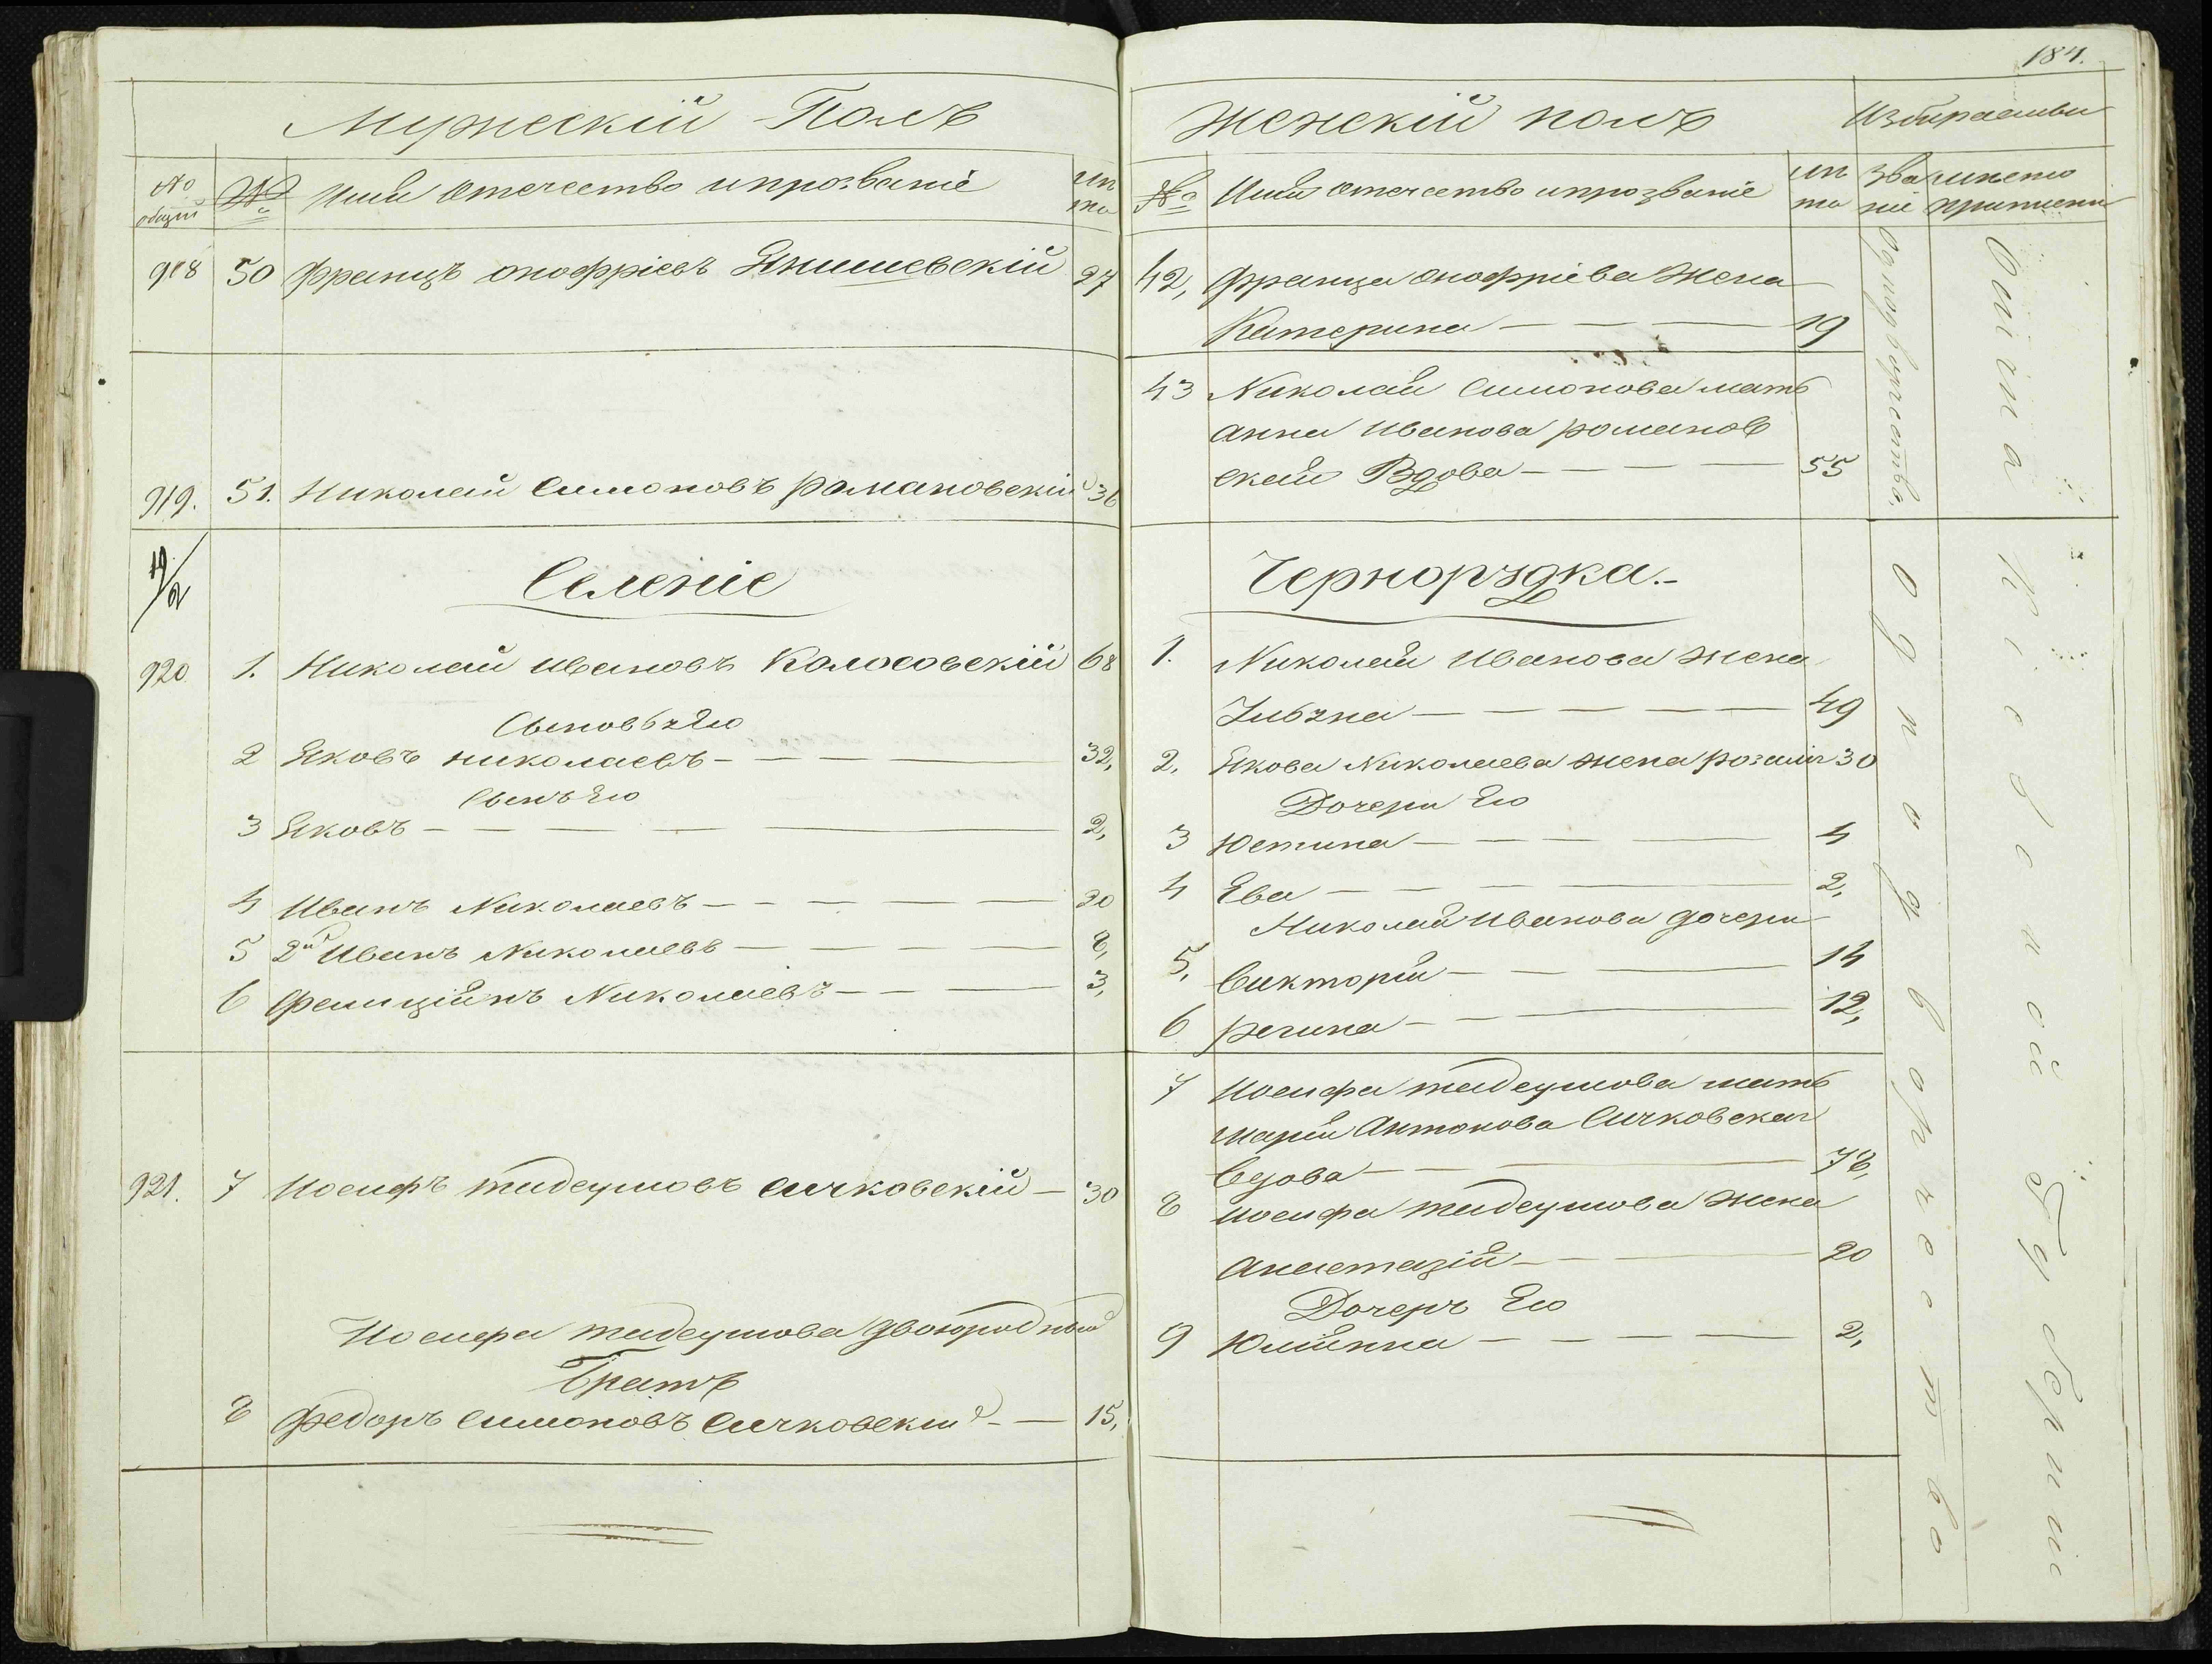 Мужескій Полъ
№ общій
№
Имя отечество и прозваніе
лѣта
918 50 Францъ онофріевъ Янишевскій 27
919. 51. Николай Симоновъ романовскій 36
19/2
Селеніе
920 1. Николай ивановъ Колосовскій 68
Сыновья Его
2 Яковъ николаевъ - - - 32,
Сынъ Его
3 Яковъ - - - 2,
4 Иванъ Николаевъ - - - 20
5 2й Иванъ Николаевъ - - - 8,
6 Фелиціянъ Николаевъ - - - 3,
921. 7 Иосифъ тадеушовъ Сичковскій - 30
Иосифа тадеушова двоюродный
Братъ
8 Федоръ Симоновъ Сичковскій - - 15,
184.
Женскій полъ
Избираемы
№
Имя отечество и прозваніе
лѣта
званіе
42, Франца онофріева жена
Катерина - - - 19
43 Николая Симонова мать
анна иванова романов
ская Вдова - - - 55
Однодворчество
Черноруδка.-
1. Николая Иванова жена
- - - 49
2. Якова Николаева жена розалія 30
Дочери Его
3 Юстина - - - 4
4 Ева - - - 2,
Николая Иванова дочери
5, Викторія - - - 14
6 регина - - - 12,
7 Иосифа тадеушова мать
марія Антонова Сичковская
Вдова - - - 78,
8 Иосифа тадеушова жена
Анастазія - - - 20
Дочерь Его
9 Юліянна - - - 2,
Однодворчество
Кіевской Губерніи